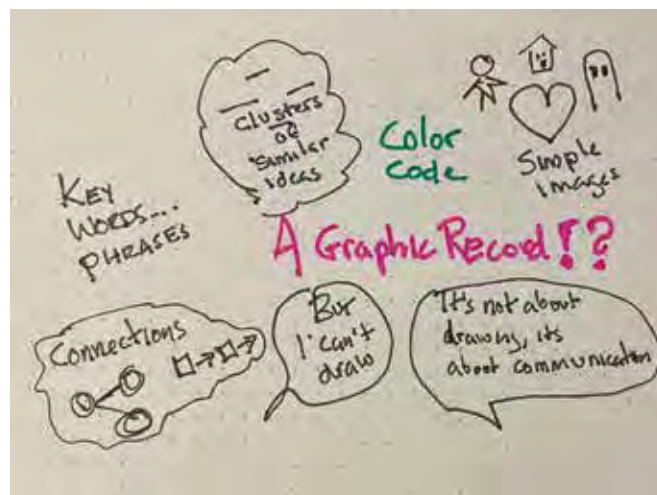 Clusters
of
Similar
ideas
Color
Code
Simple
images
Key
Words...
Phrases
A Graphic Record!?
Connections
But
I can't
draw
It's not about
drawing, its
about communication